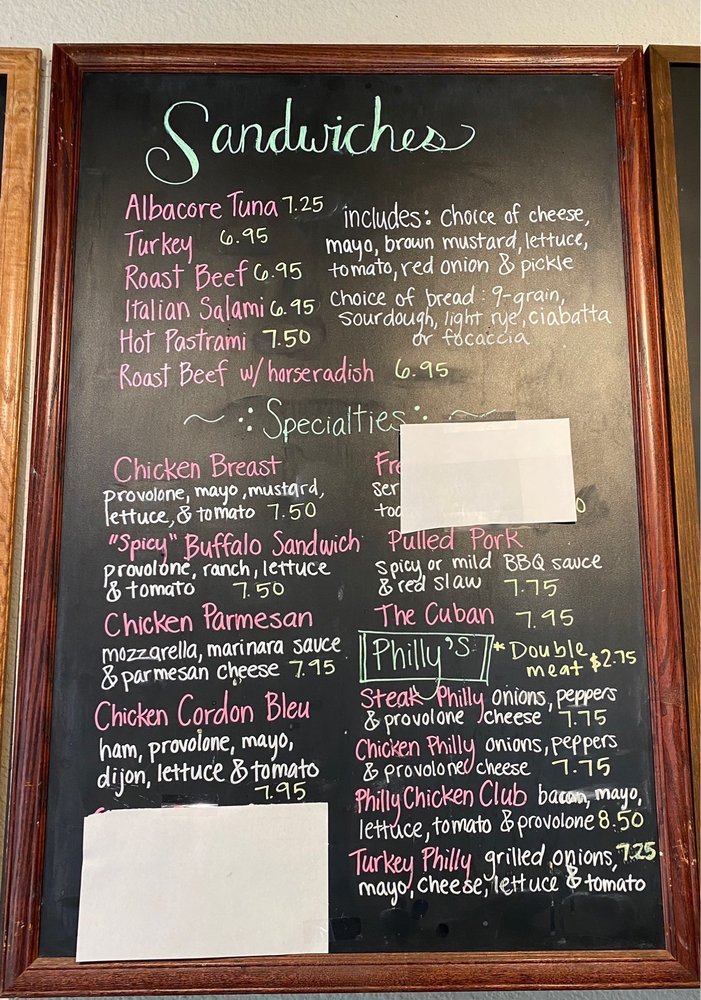 Sandwiches
Albacore Tuna 7.25
Turkey 6.95
Roast Beef 6.95
Italian Salami 6.95
Hot Pastrami 7.50
Roast Beef w/ horseradish 6.95
includes: choice of cheese,
mayo, brown mustard, lettuce,
tomato, red onion & pickle
Choice of bread: 9-grain,
sourdough, light rye, ciabatta
or focaccia
~ ·: Specialties :· ~
Chicken Breast
provolone, mayo, mustard,
lettuce, & tomato 7.50
"Spicy" Buffalo Sandwich
provolone, ranch, lettuce
& tomato 7.50
Chicken Parmesan
mozzarella, marinara sauce
& parmesan cheese 7.95
Chicken Cordon Bleu
ham, provolone, mayo,
dijon, lettuce & tomato
7.95
Pulled Pork
spicy or mild BBQ sauce
& red slaw 7.75
The Cuban 7.95
Philly's * Double
meat $2.75
Steak Philly onions, peppers
& provolone cheese 7.75
Chicken Philly onions, peppers
& provolone cheese 7.75
Philly Chicken Club bacon, mayo,
lettuce, tomato & provolone 8.50
Turkey Philly grilled onions, 7.25
mayo, cheese, lettuce & tomato